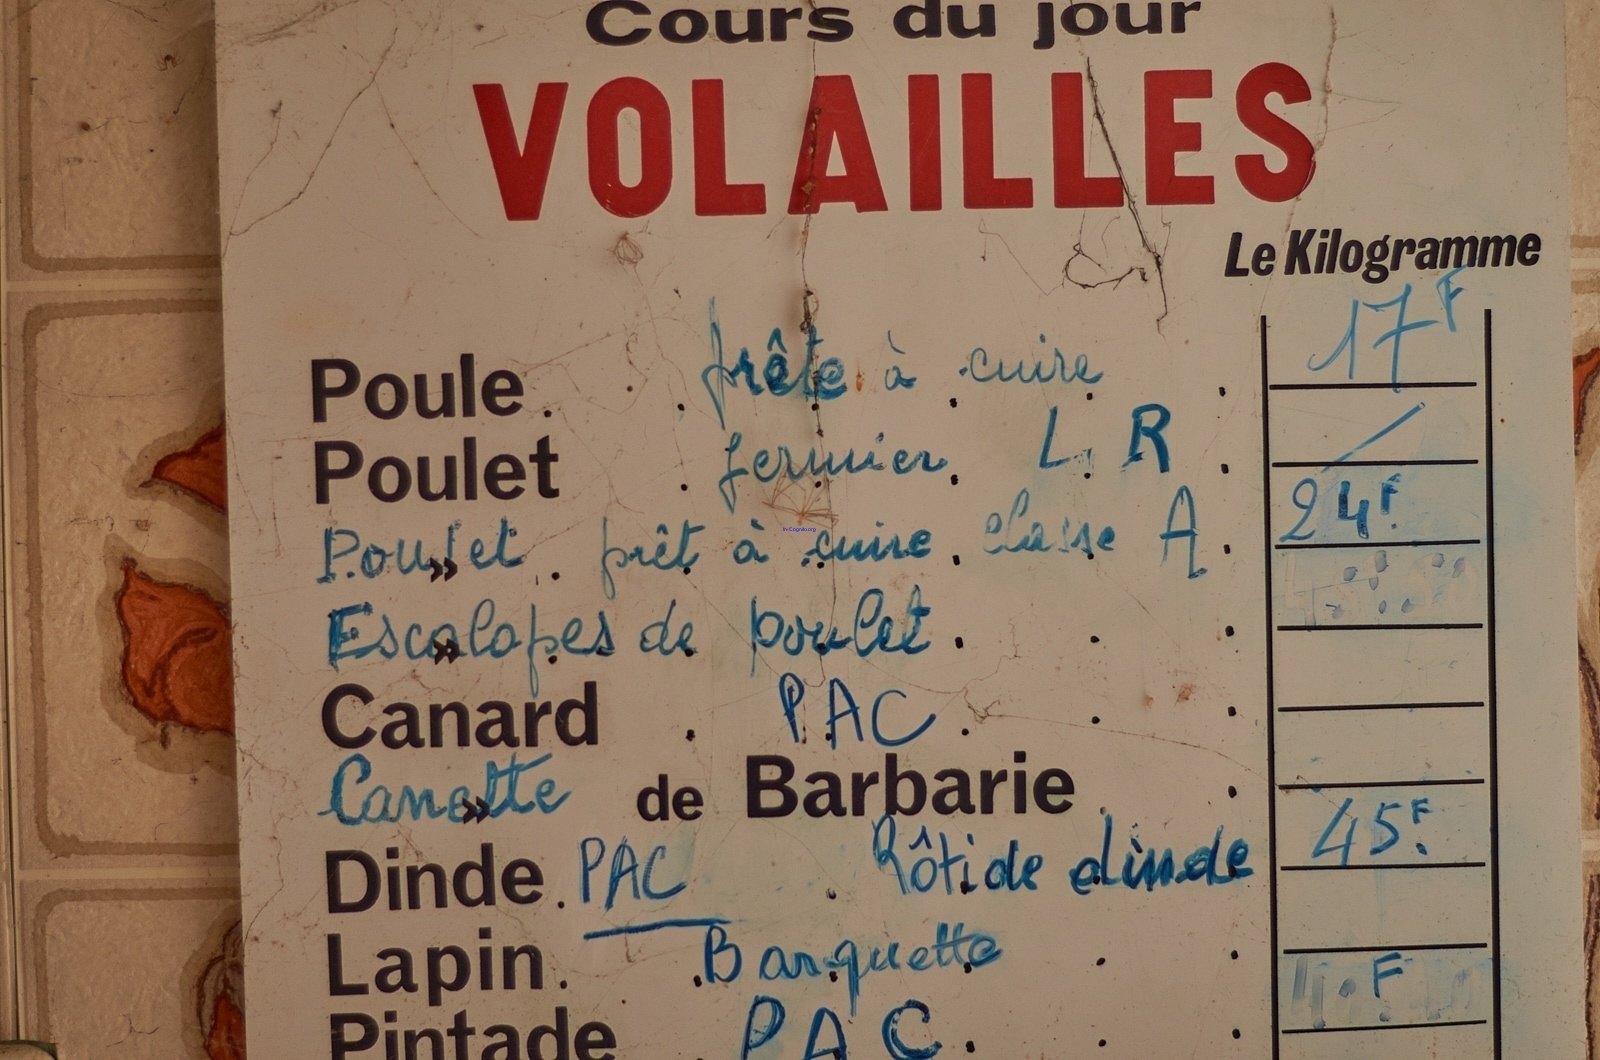 Cours du jour
VOLAILLES
Le Kilogramme
Poule prête à cuire 17F
Poulet fermier L R
Poulet prêt à cuire classe A 24F
Escalopes de poulet
Canard PAC
Canette de Barbarie
Dinde PAC Rôti de dinde 45F
Lapin Barquette
Pintade PAC F
In-Cognito.org